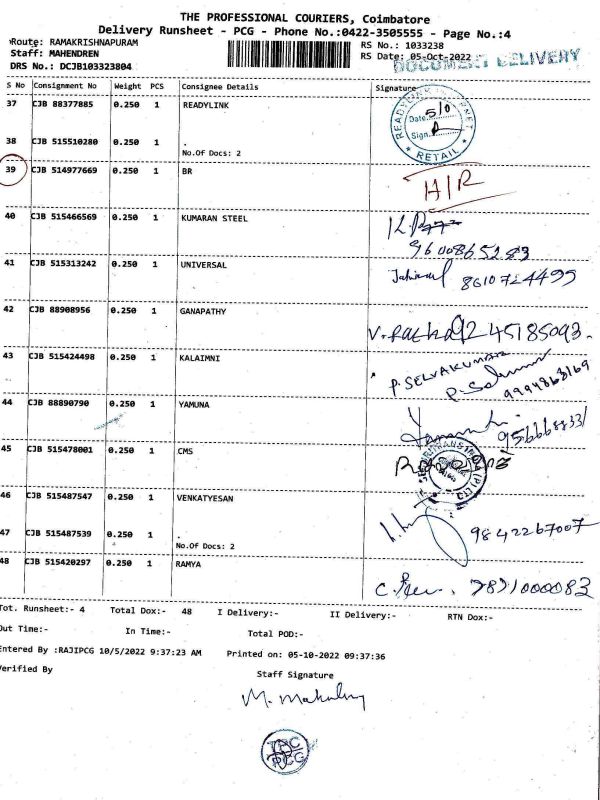 THE PROFESSIONAL COURIERS, Coimbatore
Delivery Runsheet - PCG - Phone No.:0422-3505555 - Page No.:4
Route: RAMAKRISHNAPURAM
RS No.: 1033238
Staff: MAHENDREN
RS Date: 05-Oct-2022
DOCUMENT DELIVERY
DRS No.: DCJB103323804
S No Consignment No Weight PCS Consignee Details Signature
37 CJB 88377885 0.250 1 READYLINK
READYLINK INTERNET
Date 5/10
Sign.
RETAIL
38 CJB 515510280 0.250 1 .
No.Of Docs: 2
39 CJB 514977669 0.250 1 BR
H/R
40 CJB 515466569 0.250 1 KUMARAN STEEL
9600865283
41 CJB 515313242 0.250 1 UNIVERSAL
8610724495
42 CJB 88908956 0.250 1 GANAPATHY
45185093
43 CJB 515424498 0.250 1 KALAIMNI
P. SELVAKUMAR
44 CJB 88890790 0.250 1 YAMUNA
45 CJB 515478001 0.250 1 CMS
46 CJB 515487547 0.250 1 VENKATYESAN
9842267007
47 CJB 515487539 0.250 1 .
No.Of Docs: 2
48 CJB 515420297 0.250 1 RAMYA
Tot. Runsheet:- 4 Total Dox:- 48 I Delivery:- II Delivery:- RTN Dox:-
Out Time:- In Time:- Total POD:-
Entered By :RAJIPCG 10/5/2022 9:37:23 AM Printed on: 05-10-2022 09:37:36
Verified By
Staff Signature
TPC
PCG